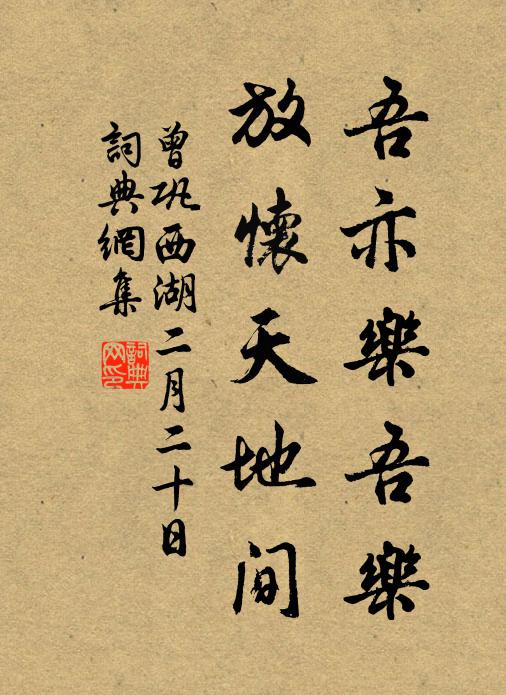 吾亦樂吾樂
放懷天地間
曾巩西湖二月二十日
詞典網集
詞典网印